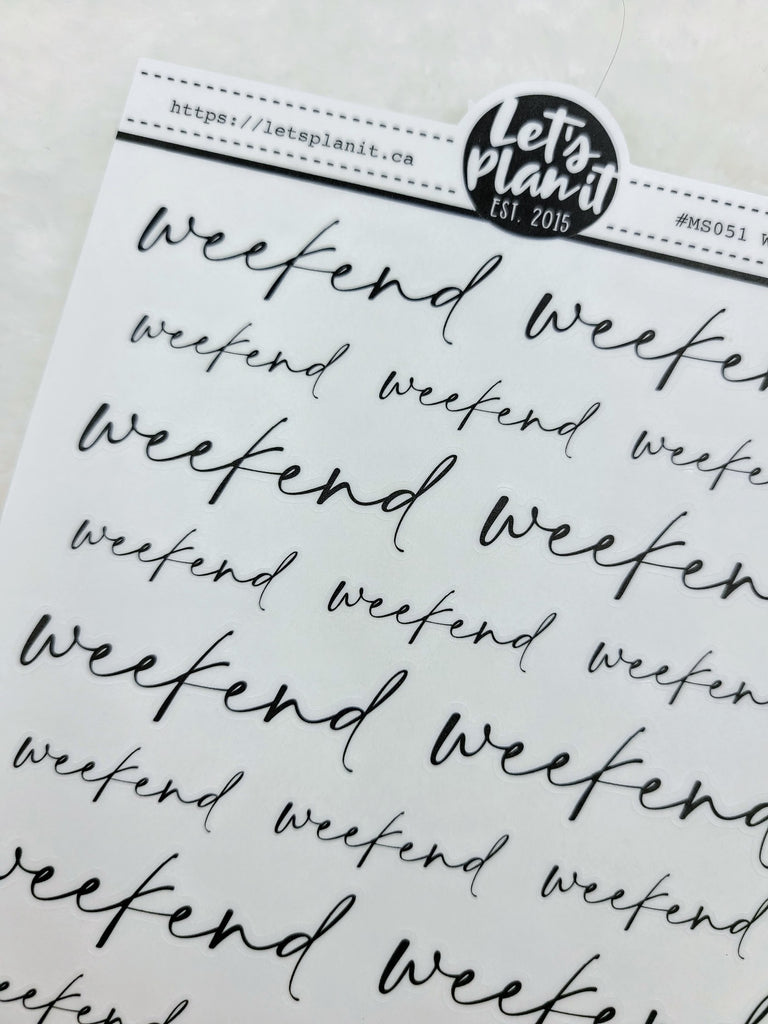 https://letsplanit.ca
Let's
plan it
EST. 2015
#MS051 W
weekend weeken
weekend weekend weeke
weekend weeken
weekend weekend weeken
weekend weekend
weekend weekend weekend
weekend weekend
weekend